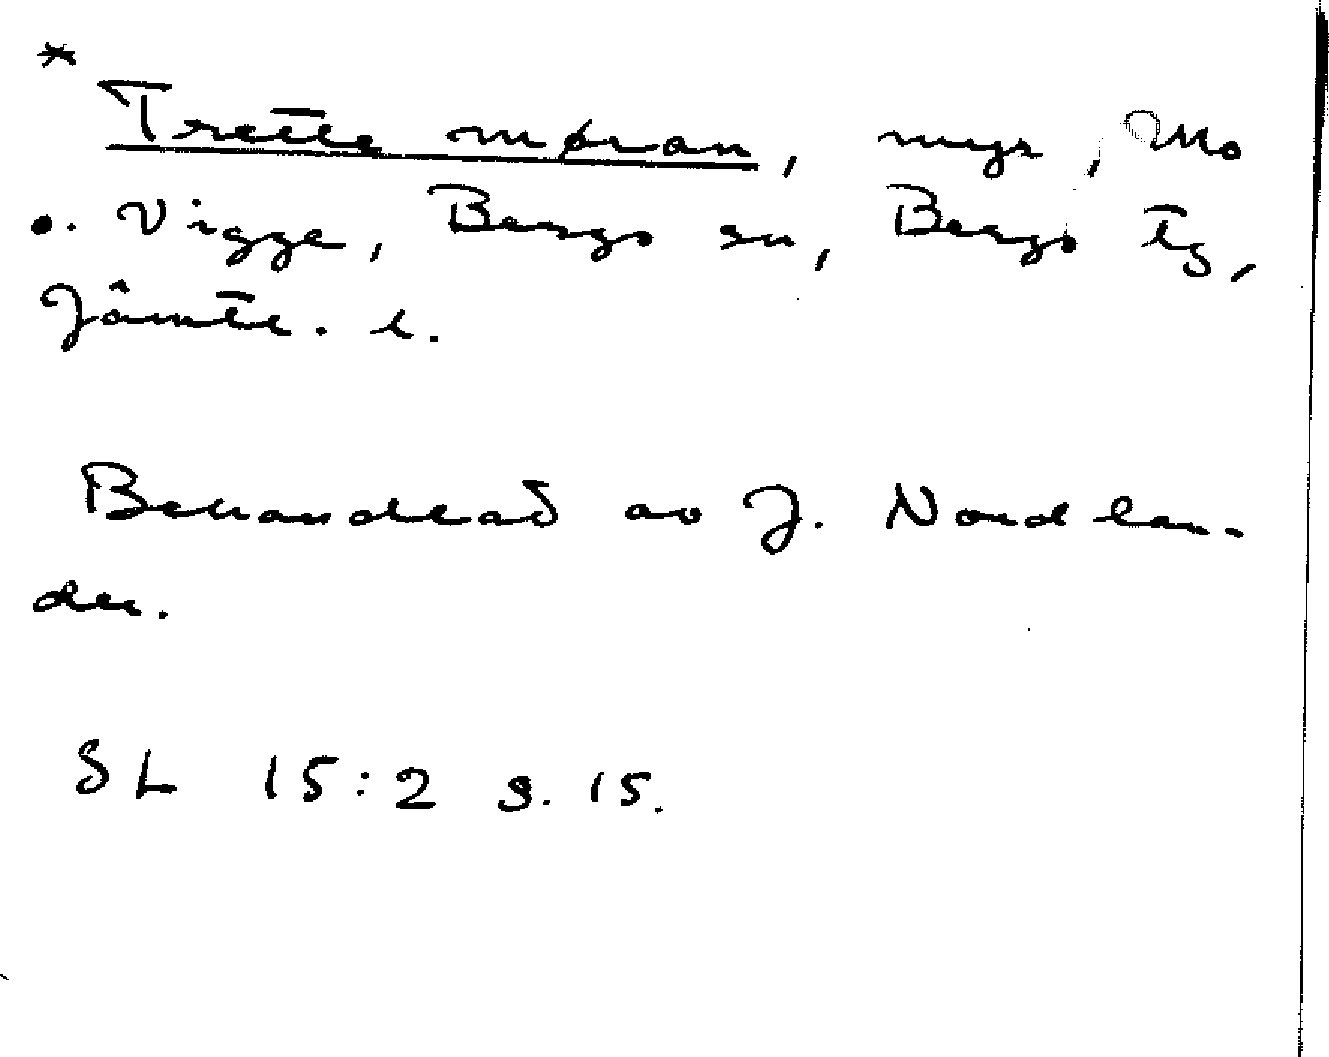 *
Trättemøran, myr, Mo
o. Vigge, Bergs sn, Bergs tg,
Jämtl. l.
Behandlad av J. Nordlan-
der.
SL 15:2 s. 15.